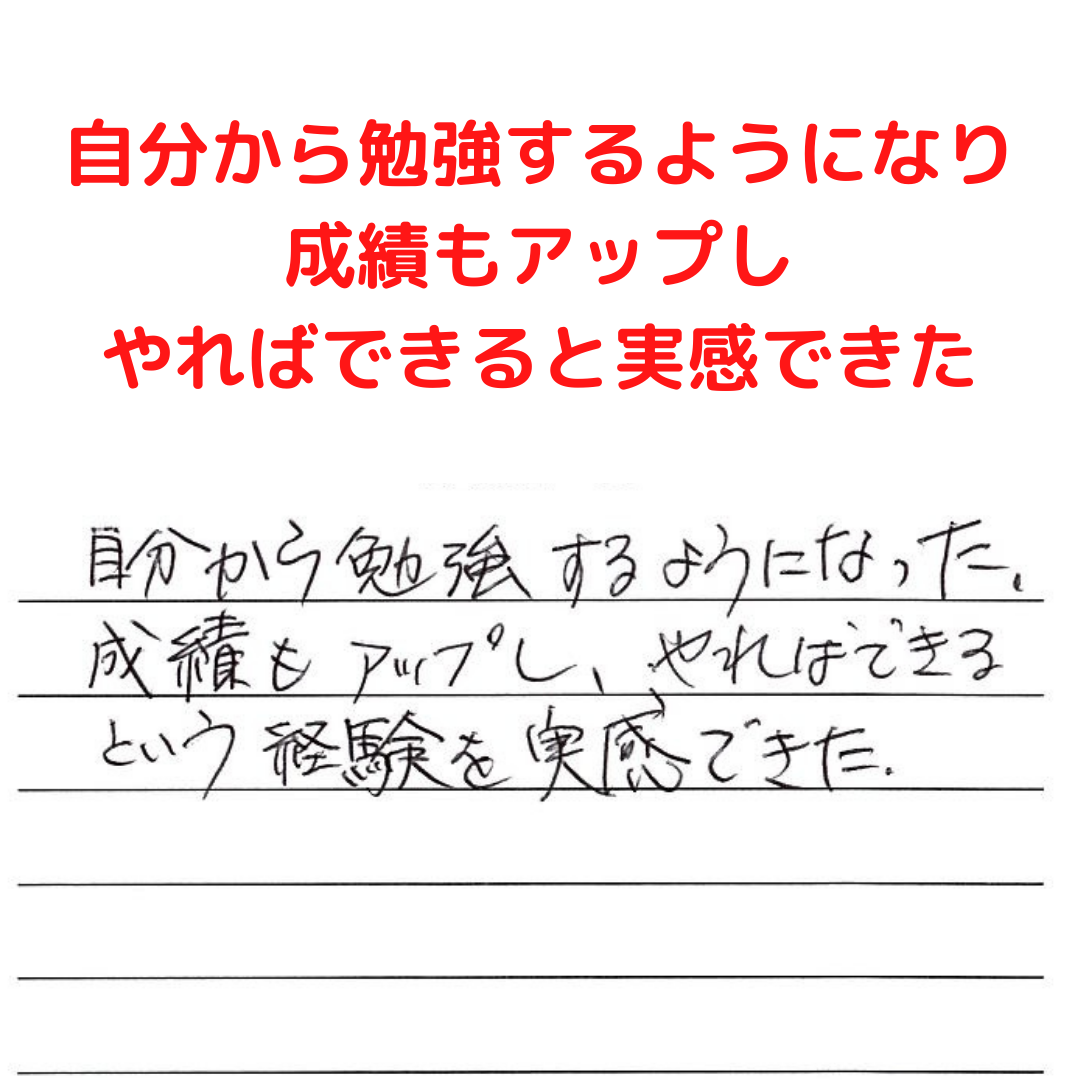 自分から勉強するようになり
成績もアップし
やればできると実感できた
自分から勉強するようになった.
成績もアップし、やればできる
という経験を実感できた.